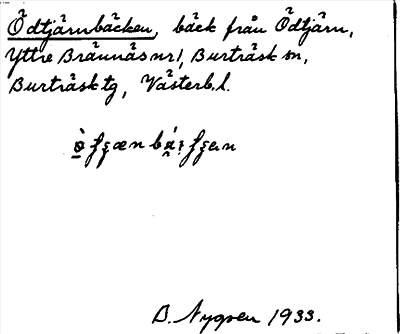 Ödtjärnbäcken, bäck från Ödtjärn,
Yttre Brännäs nr 1, Burträsk sn,
Burträsk tg, Västerb. l.
B. Nygren 1933.